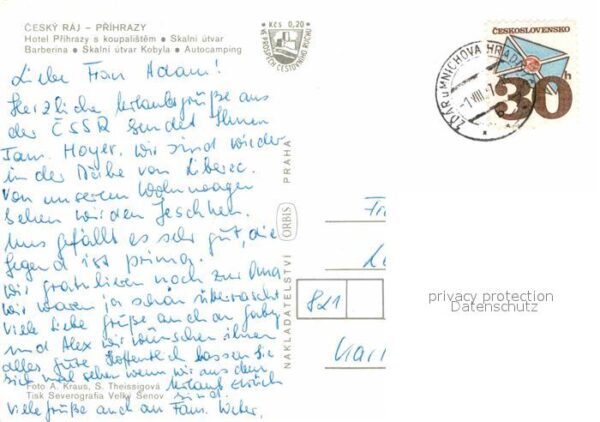 ČESKÝ RÁJ – PŘÍHRAZY
Hotel Příhrazy s koupalištěm • Skalní útvar
Barberina • Skalní útvar Kobyla • Autocamping
Kčs 0,20
VE PROSPĚCH CESTOVNÍHO RUCHU
ČESKOSLOVENSKO
30 h
ŽĎÁR U MNICHOVA HRADIŠTĚ
Liebe Frau Adam!
Herzliche Urlaubsgrüße aus
der ČSSR sendet Ihnen
Fam. Hoyer. Wir sind wieder
in der Nähe von Liberec.
Von unserem Wohnwagen
sehen wir den Jeschken.
Uns gefällt es sehr gut, die
Gegend ist prima.
Wir gratulieren noch zur Oma
wir waren ja schön überrascht
viele liebe Grüße auch an Gaby
und Alex wir wünschen ihnen
alles gute. Hoffentlich lassen Sie
sich mal sehen wenn wir aus dem
Urlaub zurück
sind.
Viele Grüße auch an Fam.
Foto A. Kraus, S. Theissigová
Tisk Severografia Velký Šenov
NAKLADATELSTVÍ ORBIS PRAHA
821
privacy protection
Datenschutz